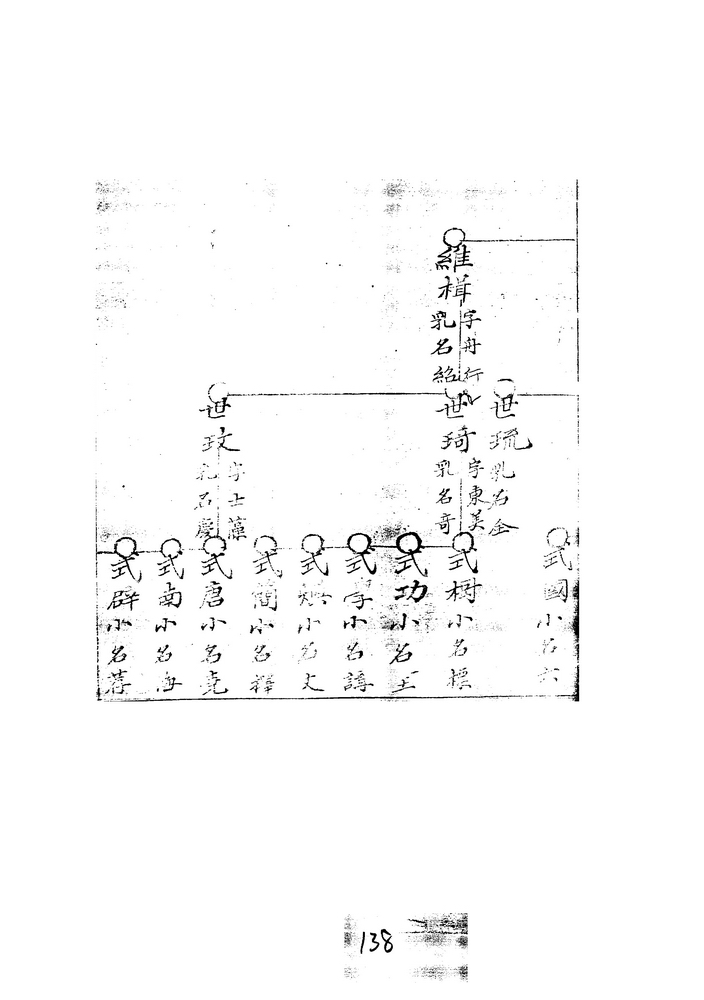 維楫
字舟行
乳名紹
世琉
乳名金
世琦
字東美
乳名奇
世玟
字士藻
乳名慶
式國小名六
式樹小名標
式功小名王
式學小名諱
式 小名文
式簡小名
式唐小名堯
式南小名海
式辟小名薦
138